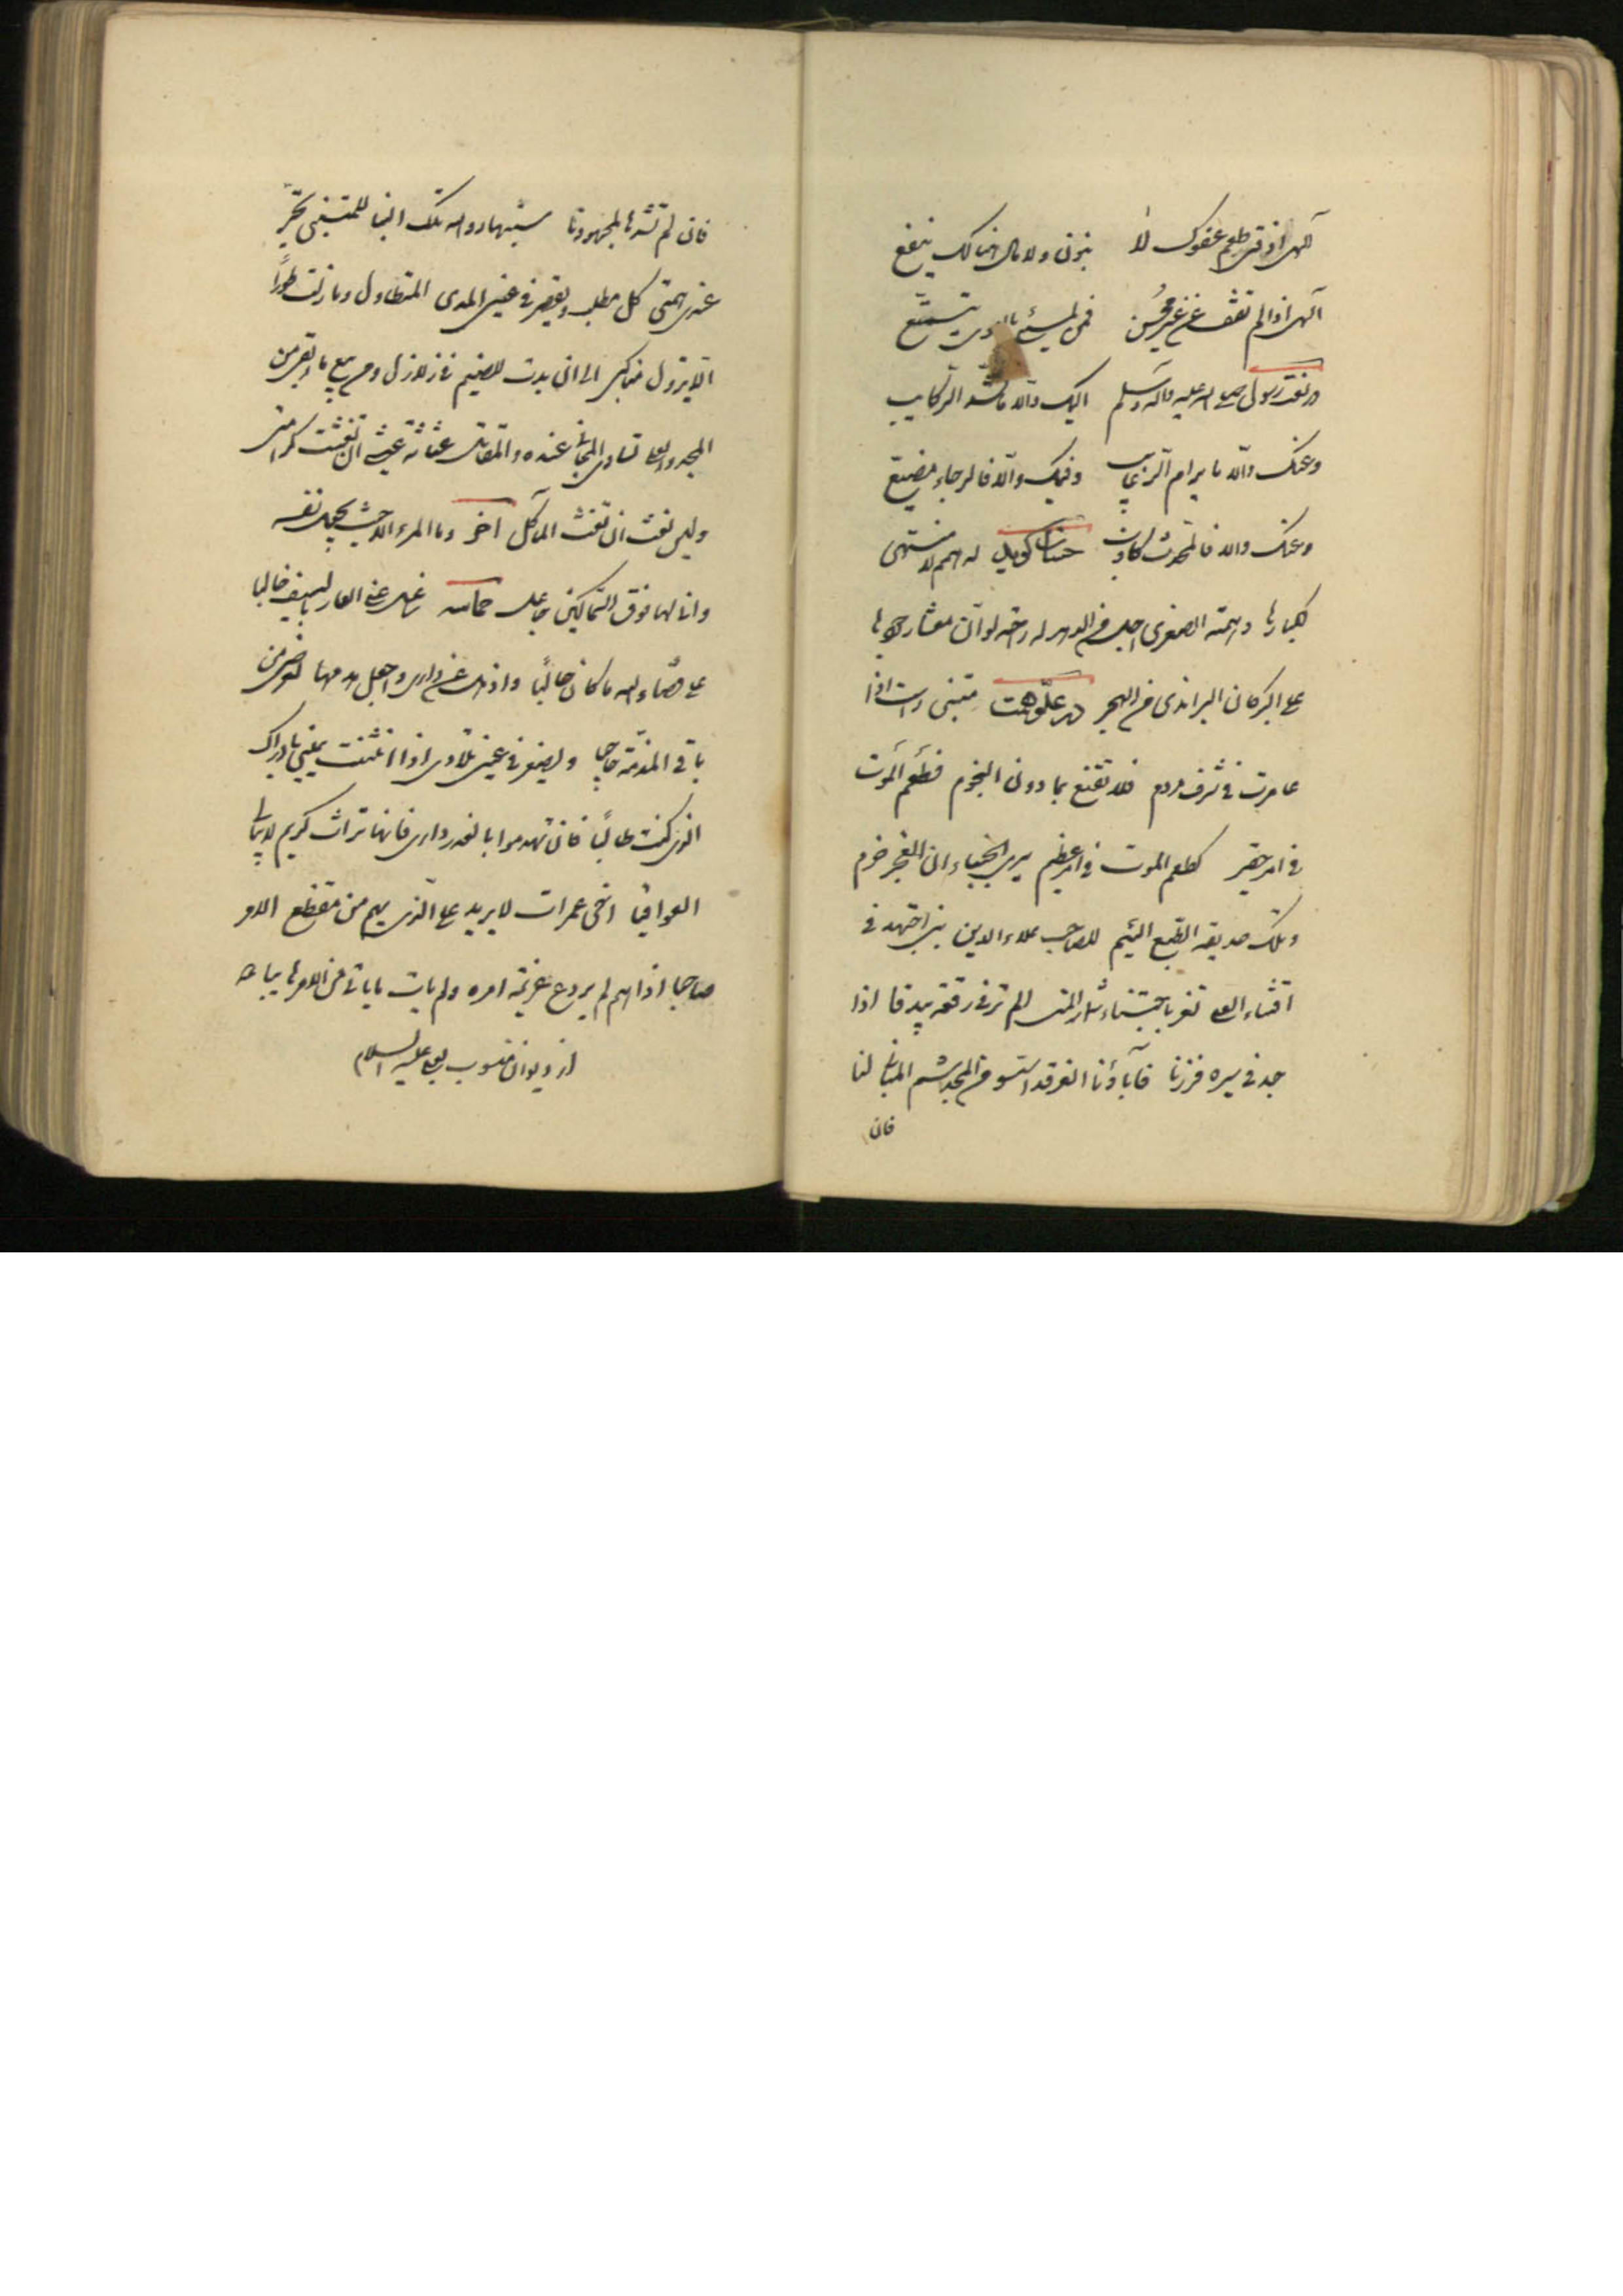 الهی اذقنی طعم عفوک لا بنون ولا مال هنالک ینفع
الهی اذا لم تعف عن غیر محسن فمن لمسیء بالهوی یتمتع
در نعت رسول صلی الله علیه وآله وسلم الیک والا ما تشد الرکایب
وعنک والا ما یرام الرغایب وفیک والا فالرجاء مضیع
وعنک والا فالمحدث کاذب حسان گوید له همم لا منتهی
لکبارها وهمته الصغری اجل من الدهر له راحة لو ان معشار جودها
علی البر کان البر اندی من البحر در علو همت متنبی راست اذا
غامرت فی شرف مروم فلا تقنع بما دون النجوم فطعم الموت
فی امر حقیر کطعم الموت فی امر عظیم یری الجبناء ان العجز حزم
وتلک خدیعة الطبع اللئیم للصاحب علاء الدین بنی اجتهد فی
اقتناء العلی تفز باجتناء ثمار المنی الم تر فی رقعة بیدقا اذا
جد فی سیره فرزنا فآباؤنا الغر قد اسسوا من المجد شم المبانی لنا
فان
فان لم نشدها بمجهودنا سینهار والله تلک البنا للمتنبی تحقر
عندی همتی کل مطلب ویقصر فی عینی المدی المتطاول وما زلت طودا
لا یزول مناکبی الی ان بدت للضیم فی زلازل ومن یبغ ما ابغی من
المجد والعلی تساوی المحائی عنده والمقاتل غثاثة عیشی ان تغث کرامتی
ولیس بغث ان تغث المآکل آخر وما المرء الا حیث یجعل نفسه
وانا لها فوق السماکین جاعل حماسه ساغسل عنی العار بالسیف جالبا
علی قضاء الله ما کان جالبا واذهل عن داری واجعل هدمها لعرضی من
باقی المذمة حاجبا ویصغر فی عینی تلادی اذا انثنت یمینی بادراک
الذی کنت طالبا فان تهدموا بالغدر داری فانها تراث کریم لا یبالی
العواقبا اخی غمرات لا یرید علی الذی یهم من مقطع الامر
صاحبا اذا هم لم یردع عزیمة امره ولم یأت ما یأتی من الامر هایبا
از دیوان منسوب بعلی علیه السلام